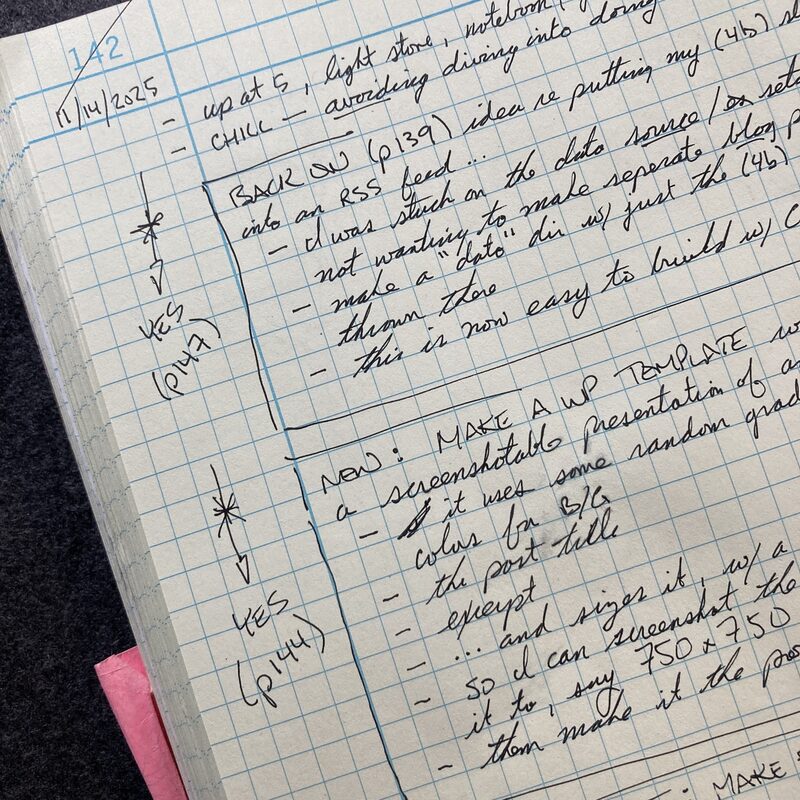 142
11/14/2025
- up at 5, light stove, notebook,
- CHILL - avoiding diving into doing
BACK ON (p139) idea re putting my (4b)
into an RSS feed...
- I was stuck on the data source / or
not wanting to make seperate blog
- make a "data" dir w/ just the (4b)
thrown there
- this is now easy to build w/ C
YES
(p147)
NEW: MAKE A WP TEMPLATE
a screenshotable presentation of a
- it uses some random grad
colors for B/G
- the post title
- exerpt
- ... and sizes it, w/ a
- so I can screenshot the
it to, say 750 x 750
- them make it the pos
YES
(p144)
: MAKE